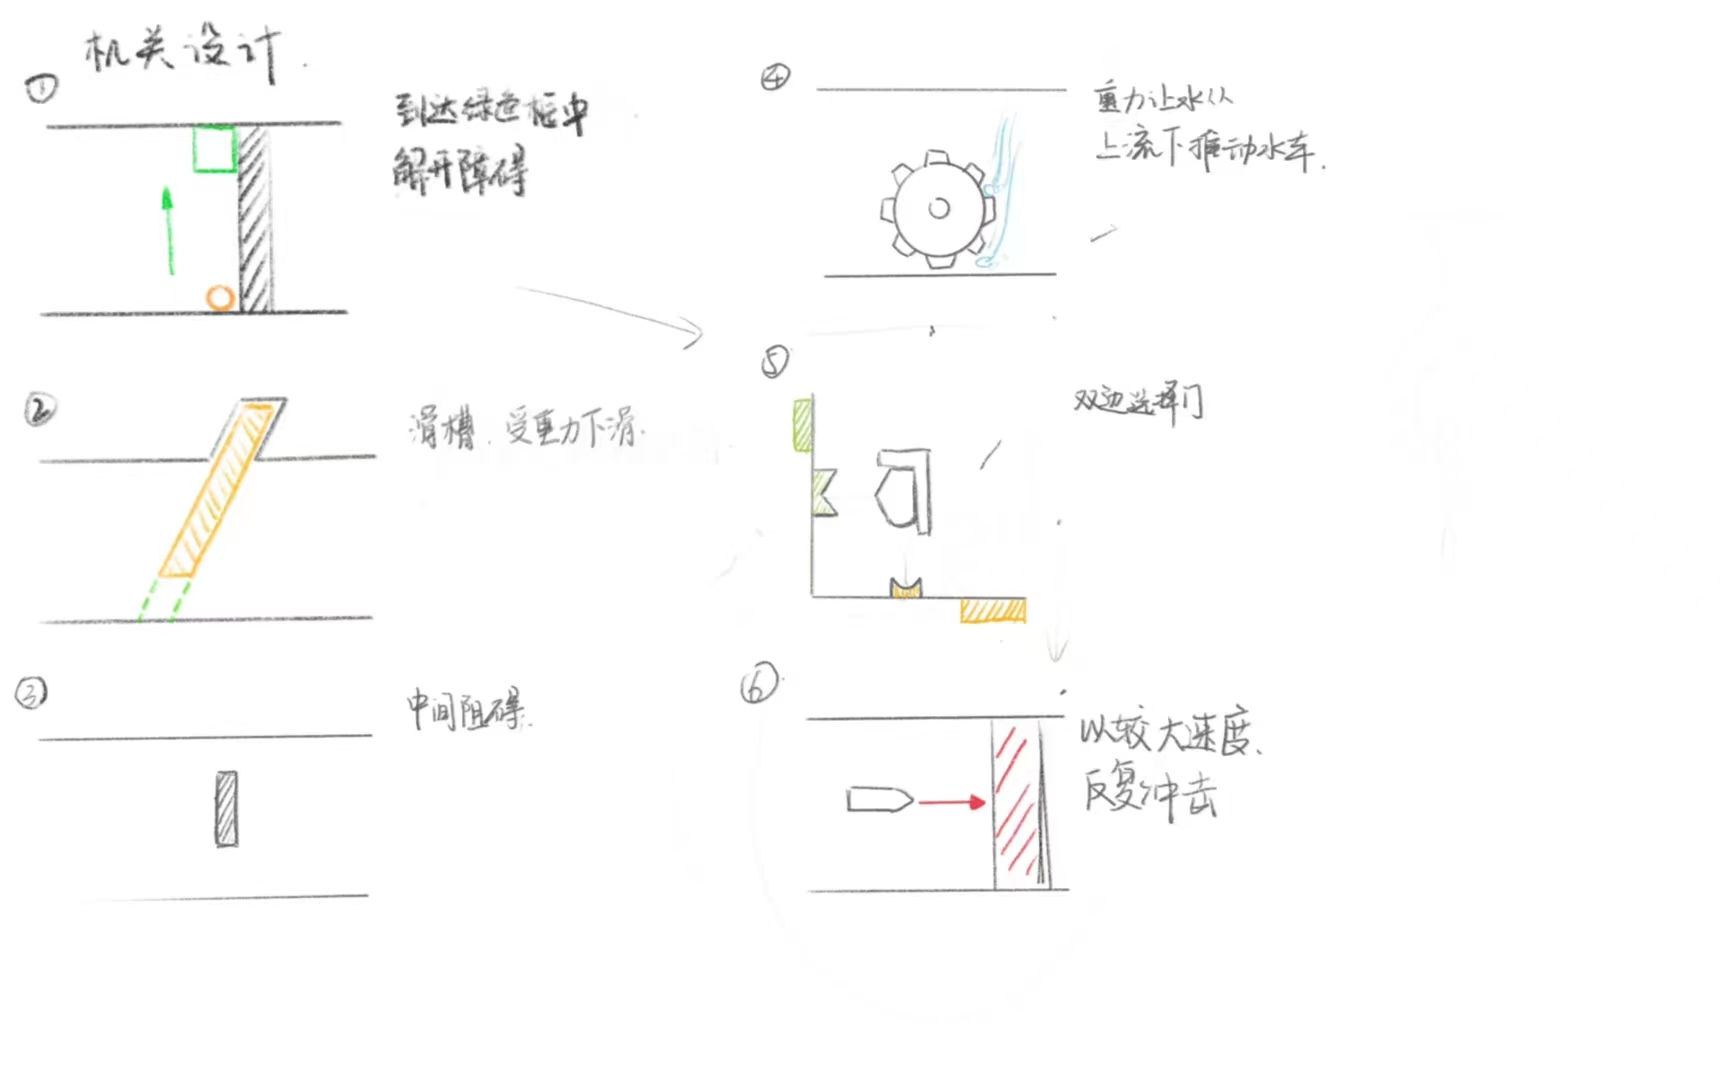 机关设计.
①
到达绿色框中
解开障碍
②
滑槽.受重力下滑.
③
中间阻碍.
④
重力让水从
上流下推动水车.
⑤
双边选择门
⑥
以较大速度.
反复冲击